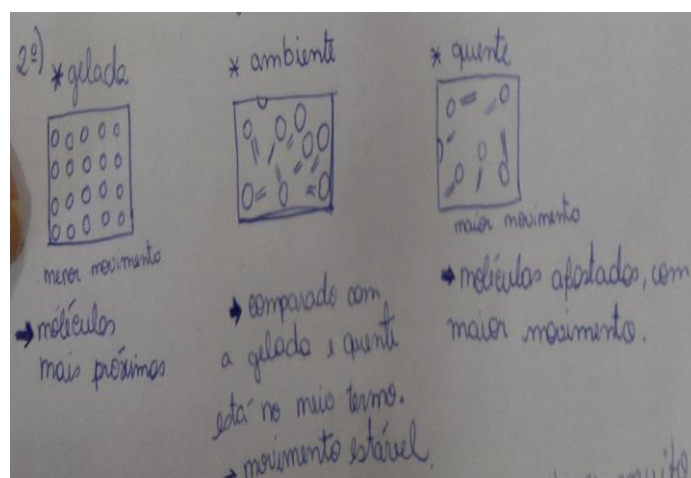 2º) * gelada
menor movimento
→ moléculas
mais próximas
* ambiente
→ comparado com
a gelada e quente
está no meio termo.
→ movimento estável.
* quente
maior movimento
→ moléculas afastadas, com
maior movimento.